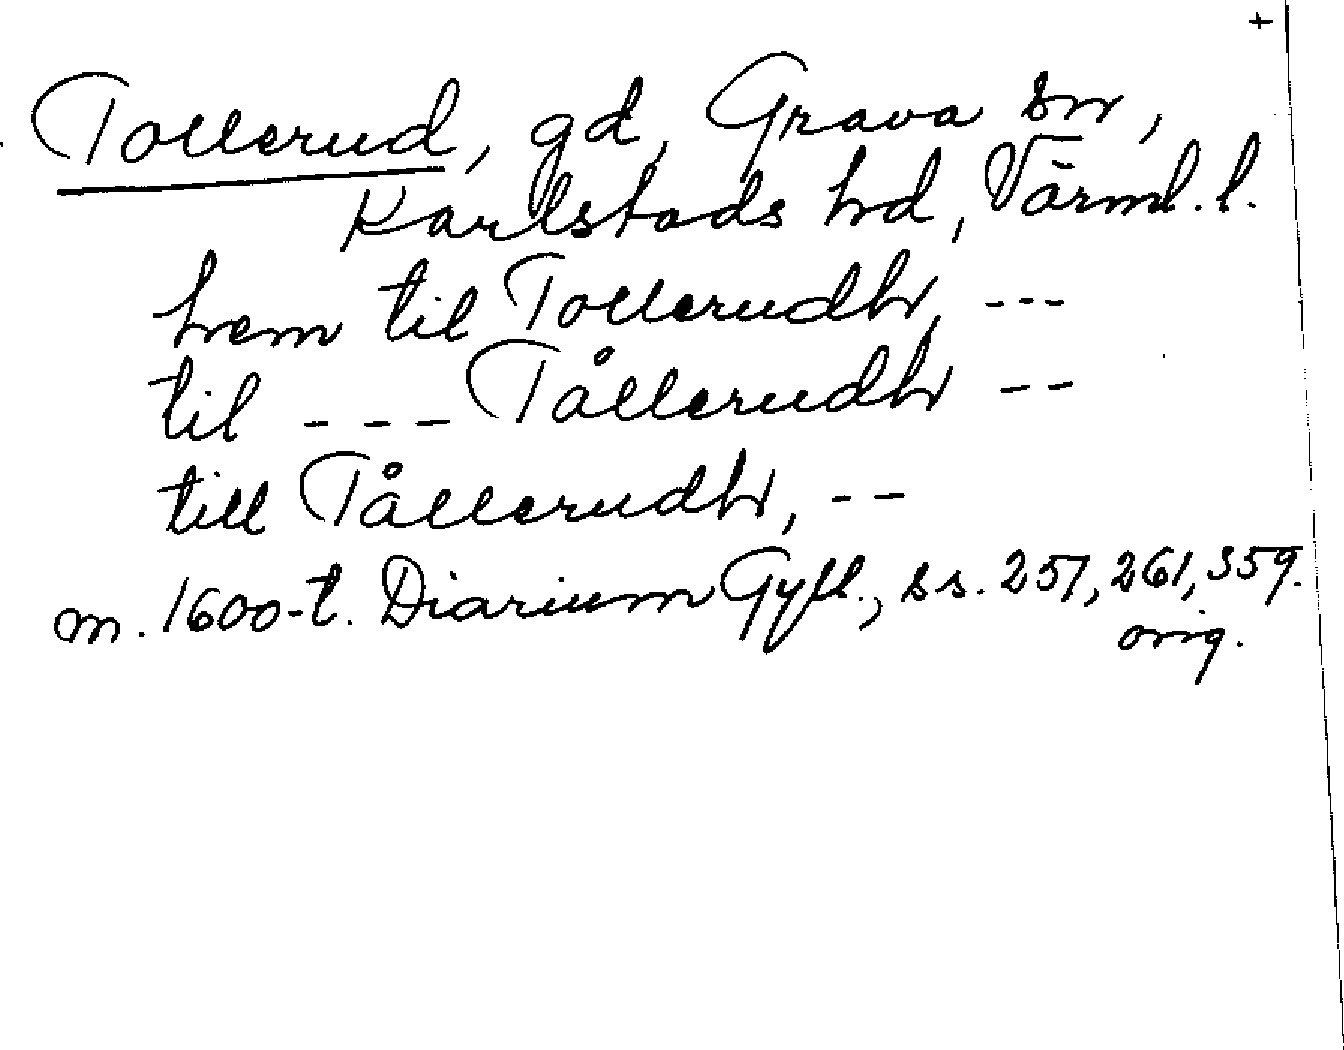 +
Tollerud, gd, Grava sn,
Karlstads hd, Värml. l.
hem til Tollerudh, ---
til --- Tållerudh --
till Tållerudh, --
m. 1600-t. Diarium Gyll., ss. 257, 261, 359.
orig.